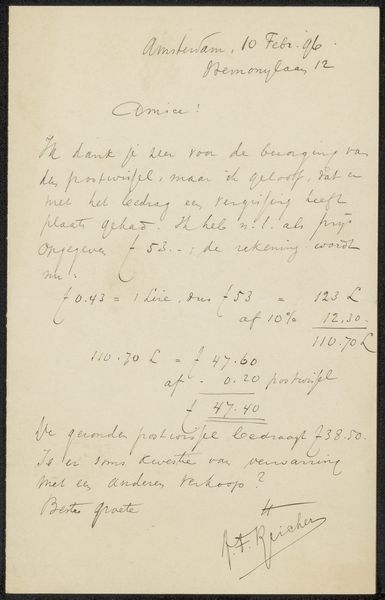 Amsterdam, 10 Febr. 96.
Bremonylaan 12
Amice!
Ik dank je zeer voor de bezorging van
den postwissel, maar ik geloof, dat er
met het bedrag een vergissing heeft
plaats gehad. Ik heb n.l. als prijs
opgegeven f 53.-; de rekening wordt
nu:
f 0.43 = 1 Lire, dus f 53 = 123 L
af 10% 12.30
110.70 L
110.70 L = f 47.60
af - 0.20 postwissel
f 47.40
De gezonden postwissel bedraagt f 38.50.
Is er soms kwestie van verwarring
met een anderen verkoop?
Beste groete
tt
A. F. Reicher